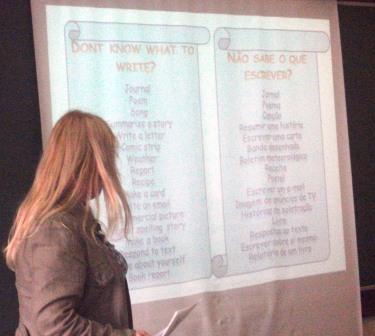 DONT KNOW WHAT TO
WRITE?
Journal
Poem
Song
Summarize a story
Write a letter
Comic strip
Weather
Report
Recipe
a card
an email
commercial picture
spelling story
a book
to text
about yourself
Book report
NÃO SABE O QUE
ESCREVER?
Jornal
Poema
Canção
Resumir uma história
Escrever uma carta
Banda desenhada
Boletim meteorológico
Receita
Postal
Escrever um e-mail
Imagem de anúncios de TV
Histórias de soletração
Livro
Respostas ao texto
Escrever sobre si mesmo
Relatório de um livro